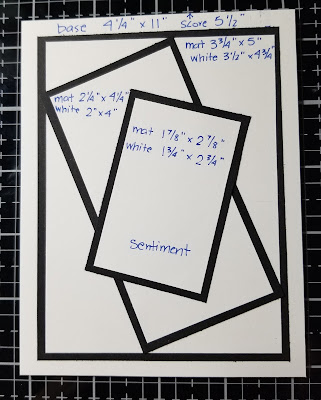 base 4 1/4" x 11" ↑ score 5 1/2"
mat 3 3/4" x 5"
white 3 1/2" x 4 3/4"
mat 2 1/4" x 4 1/4"
white 2" x 4"
mat 1 7/8" x 2 7/8"
white 1 3/4" x 2 3/4"
Sentiment